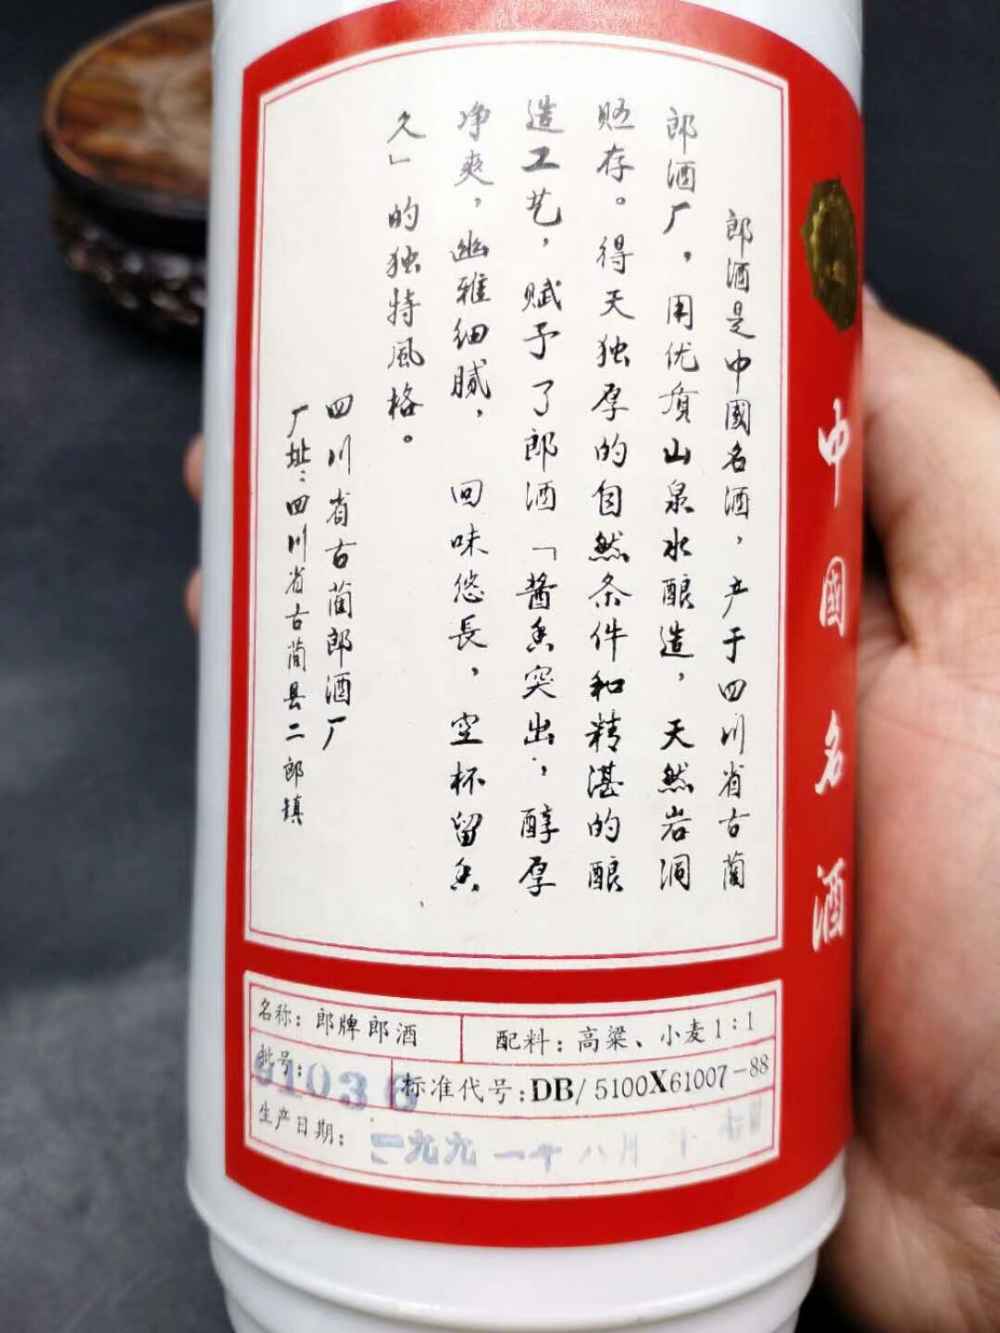 郎酒是中國名酒，产于四川省古蔺
郎酒厂，用优质山泉水酿造，天然岩洞
贮存。得天独厚的自然条件和精湛的酿
造工艺，赋予了郎酒「酱香突出，醇厚
净爽，幽雅细腻，回味悠長，空杯留香
久」的独特風格。
四川省古蔺郎酒厂
厂址：四川省古蔺县二郎镇
中國名酒
名称：郎牌郎酒
配料：高粱、小麦1：1
批号：
标准代号：DB/5100X61007-88
生产日期：一九九一年八月十七日